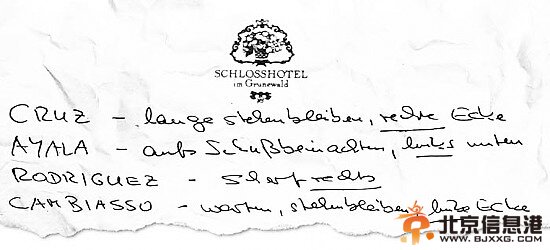 SCHLOSSHOTEL
im Grunewald
CRUZ – lange stehenbleiben, rechte Ecke
AYALA – aufs Schußbein achten, links unten
RODRIGUEZ – scharf rechts
CAMBIASSO – warten, stehenbleiben, linke Ecke
北京信息港
WWW.BJXXG.COM